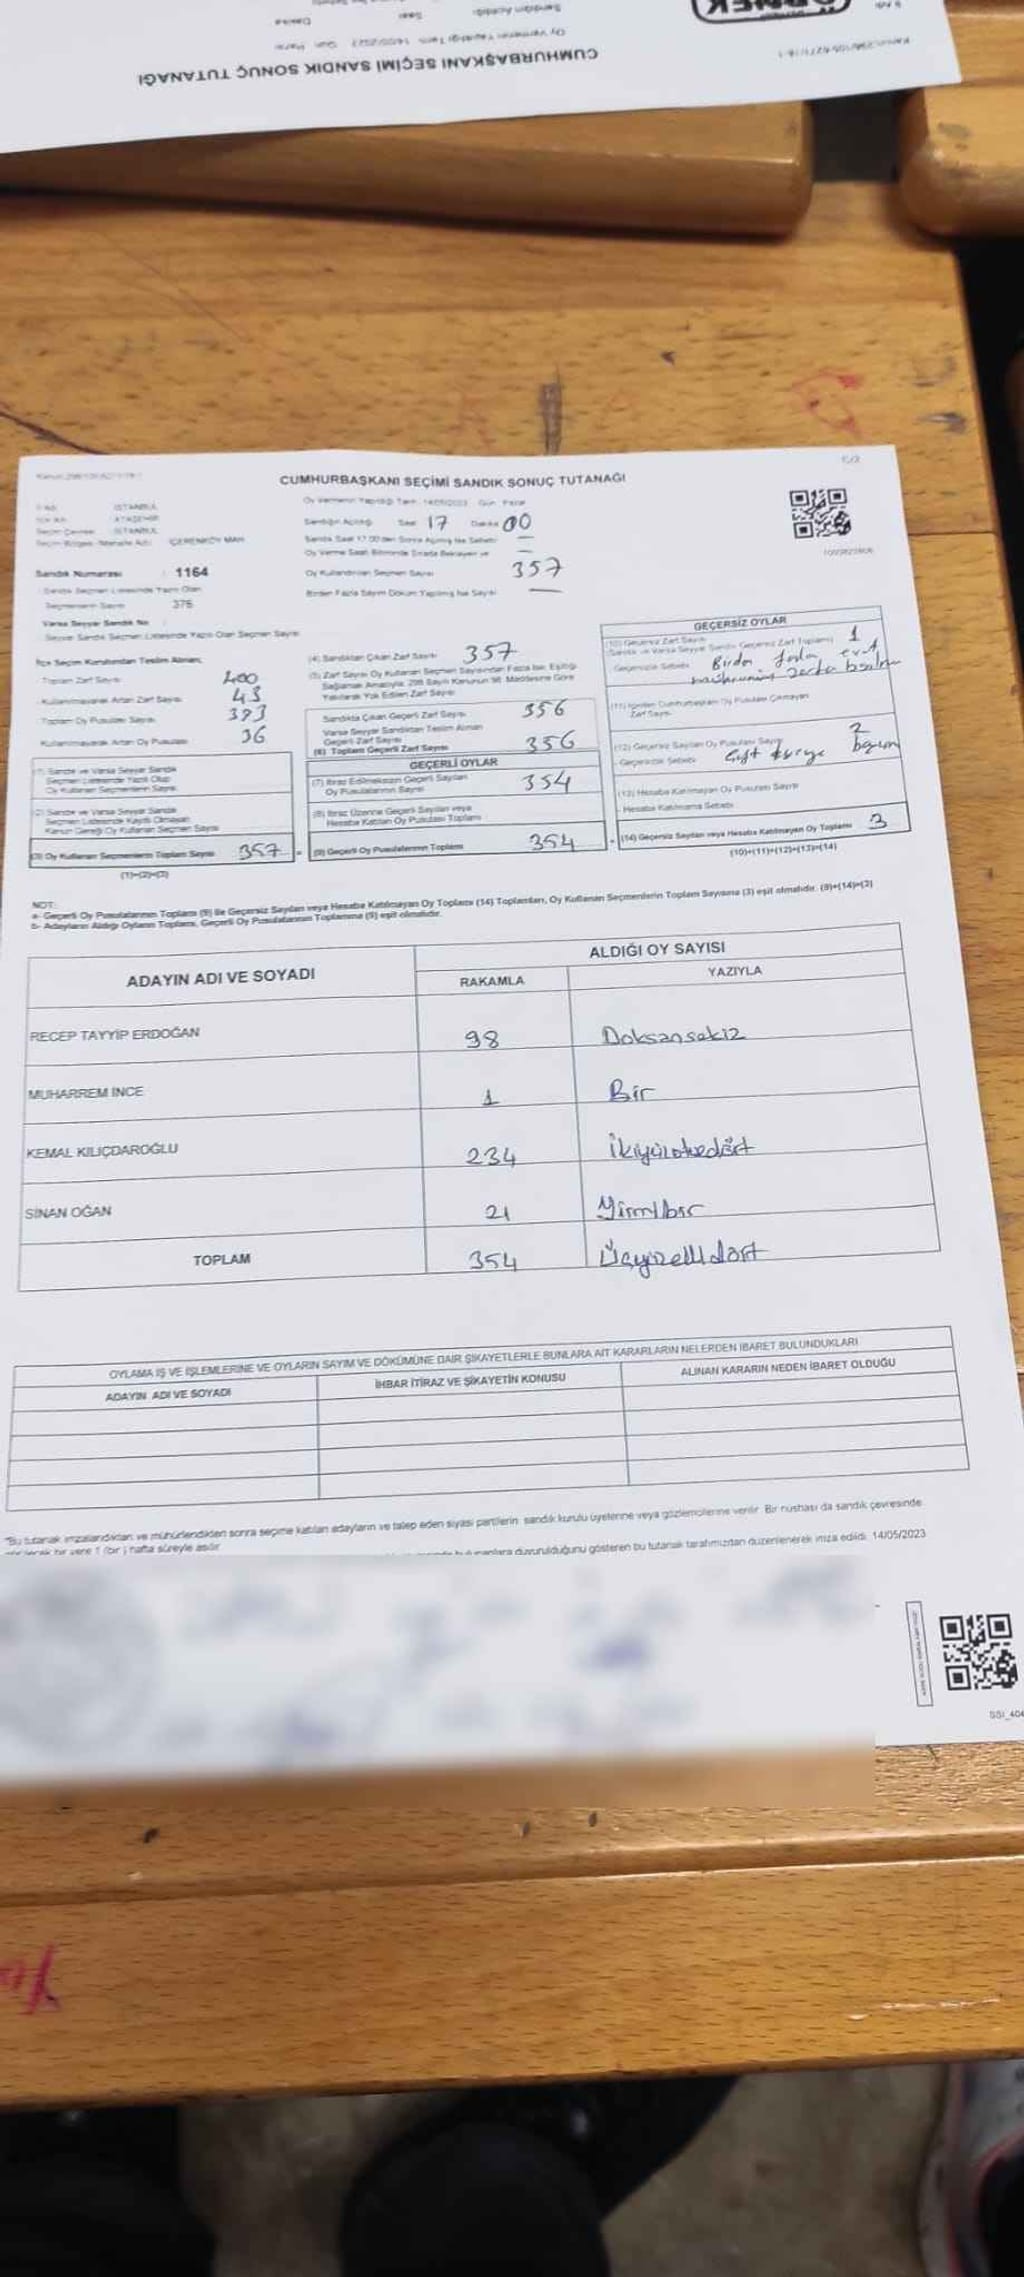 CUMHURBAŞKANI SEÇİMİ SANDIK SONUÇ TUTANAĞI
Oy Vermenin Yapıldığı Tarih 14/05/2023 Gün
ÖRNEK
CUMHURBAŞKANI SEÇİMİ SANDIK SONUÇ TUTANAĞI
İSTANBUL
ATAŞEHİR
İSTANBUL
İÇERENKÖY MAH
Oy Vermenin Yapıldığı Tarih 14/05/2023 Gün Pazar
Sandığın Açıldığı Saat 17 Dakika 00
Sandık Saat 17:00'den Sonra Açılmış İse Sebebi —
Oy Verme Saati Bitiminde Sırada Bekleyen ve —
Oy Kullandırılan Seçmen Sayısı 357
Birden Fazla Sayım Döküm Yapılmış İse Sayısı —
Sandık Numarası : 1164
Sandık Seçmen Listesinde Yazılı Olan
Seçmenlerin Sayısı 376
Varsa Seyyar Sandık No
Seyyar Sandık Seçmen Listesinde Yazılı Olan Seçmen Sayısı
İlçe Seçim Kurulundan Teslim Alınan;
Toplam Zarf Sayısı 400
Kullanılmayarak Artan Zarf Sayısı 43
Toplam Oy Pusulası Sayısı 393
Kullanılmayarak Artan Oy Pusulası 36
(1) Sandık ve Varsa Seyyar Sandık
Seçmen Listesinde Yazılı Olup
Oy Kullanan Seçmenlerin Sayısı
(2) Sandık ve Varsa Seyyar Sandık
Seçmen Listesinde Kayıtlı Olmayan
Kanun Gereği Oy Kullanan Seçmen Sayısı
(3) Oy Kullanan Seçmenlerin Toplam Sayısı 357
(1)+(2)=(3)
(4) Sandıktan Çıkan Zarf Sayısı 357
(5) Zarf Sayısı Oy Kullanan Seçmen Sayısından Fazla İse, Eşitliği
Sağlamak Amacıyla, 298 Sayılı Kanunun 98. Maddesine Göre
Yakılarak Yok Edilen Zarf Sayısı
Sandıkta Çıkan Geçerli Zarf Sayısı 356
Varsa Seyyar Sandıktan Teslim Alınan
Geçerli Zarf Sayısı
(6) Toplam Geçerli Zarf Sayısı 356
GEÇERLİ OYLAR
(7) İtiraz Edilmeksizin Geçerli Sayılan
Oy Pusulasının Sayısı 354
(8) İtiraz Üzerine Geçerli Sayılan veya
Hesaba Katılan Oy Pusulası Toplamı
(9) Geçerli Oy Pusulalarının Toplamı 354
GEÇERSİZ OYLAR
(10) Geçersiz Zarf Sayısı
(Sandık ve Varsa Seyyar Sandık Geçersiz Zarf Toplamı) 1
Geçersizlik Sebebi Birden fazla evet
(11) İçinden Cumhurbaşkanı Oy Pusulası Çıkmayan
Zarf Sayısı
(12) Geçersiz Sayılan Oy Pusulası Sayısı 2
Geçersizlik Sebebi Çift
(13) Hesaba Katılmayan Oy Pusulası Sayısı
Hesaba Katılmama Sebebi
(14) Geçersiz Sayılan veya Hesaba Katılmayan Oy Toplamı 3
(10)+(11)+(12)+(13)=(14)
NOT:
a- Geçerli Oy Pusulalarının Toplamı (9) ile Geçersiz Sayılan veya Hesaba Katılmayan Oy Toplamı (14) Toplamları, Oy Kullanan Seçmenlerin Toplam Sayısına (3) eşit olmalıdır. (9)+(14)=(3)
b- Adayların Aldığı Oyların Toplamı, Geçerli Oy Pusulalarının Toplamına (9) eşit olmalıdır.
ADAYIN ADI VE SOYADI
ALDIĞI OY SAYISI
RAKAMLA YAZIYLA
RECEP TAYYİP ERDOĞAN 98 Doksansekiz
MUHARREM İNCE 1 Bir
KEMAL KILIÇDAROĞLU 234 İkiyüzotuzdört
SİNAN OĞAN 21 Yirmibir
TOPLAM 354 Üçyüzellidört
OYLAMA İŞ VE İŞLEMLERİNE VE OYLARIN SAYIM VE DÖKÜMÜNE DAİR ŞİKAYETLERLE BUNLARA AİT KARARLARIN NELERDEN İBARET BULUNDUKLARI
ADAYIN ADI VE SOYADI İHBAR İTİRAZ VE ŞİKAYETİN KONUSU ALINAN KARARIN NEDEN İBARET OLDUĞU
"Bu tutanak imzalandıktan ve mühürlendikten sonra seçime katılan adayların ve talep eden siyasi partilerin sandık kurulu üyelerine veya gözlemcilerine verilir. Bir nüshası da sandık çevresinde
bir yere 1 (bir) hafta süreyle asılır.
duyurulduğunu gösteren bu tutanak tarafımızdan düzenlenerek imza edildi. 14/05/2023